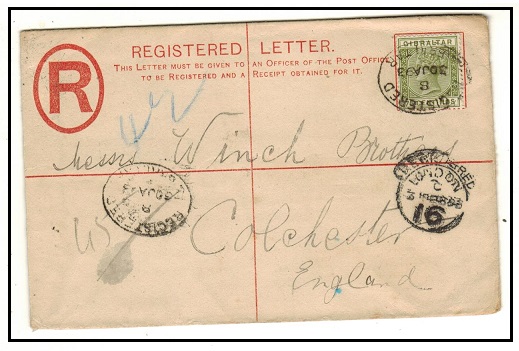 REGISTERED LETTER.
THIS LETTER MUST BE GIVEN TO AN OFFICER OF THE POST OFFICE
TO BE REGISTERED AND A RECEIPT OBTAINED FOR IT.
R
GIBRALTAR
REGISTERED
B
30JA93
Messrs Winch Brothers
REGISTERED
REGISTERED
B
LONDON
16
Colchester
England